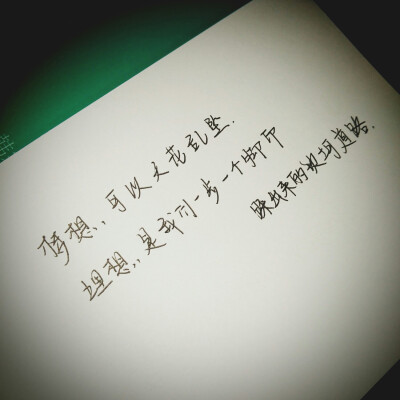 梦想,,可以天花乱坠.
理想,,是我们一步一个脚印
踩出来的坎坷道路.